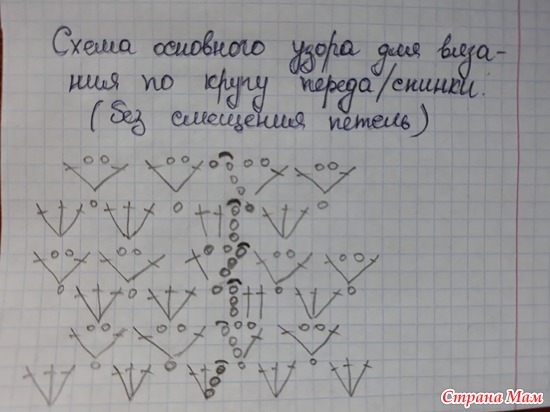 Схема основного узора для вяза-
ния по кругу переда/спинки.
(без смещения петель)
Страна Мам